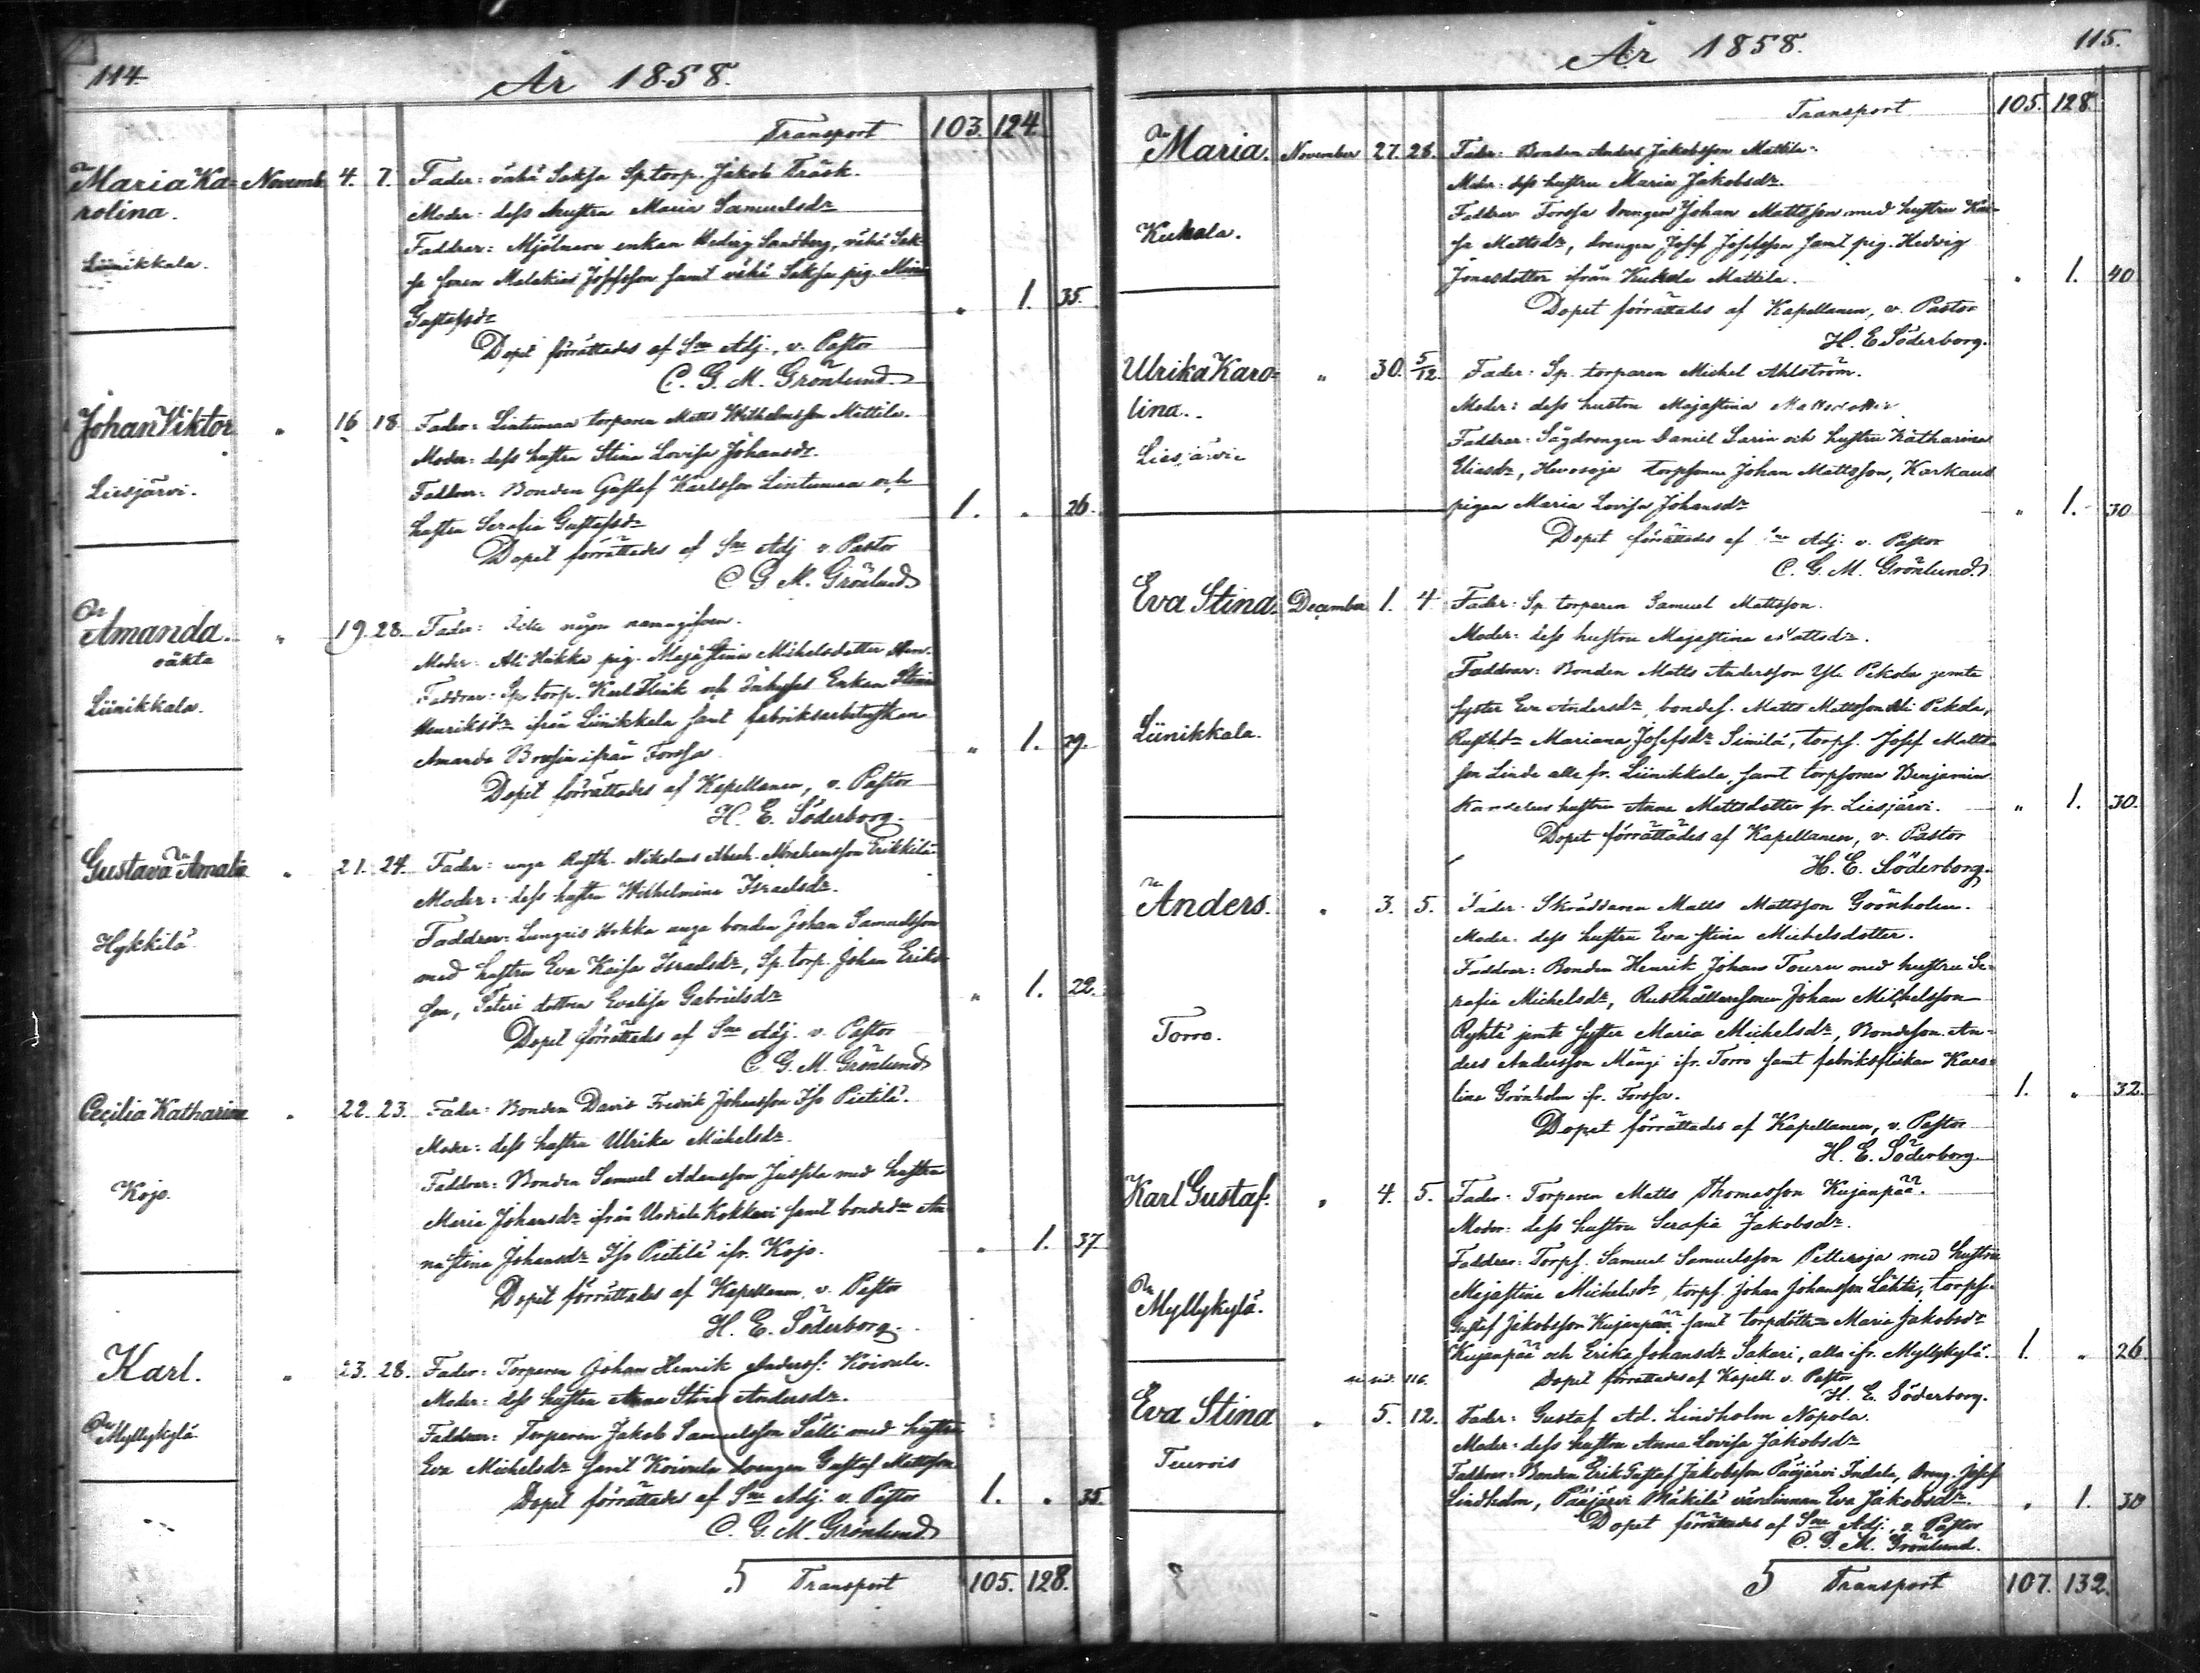 114.
År 1858.
Transport 103. 124.
Maria Ka- Novemb. 4. 7. Fader: vähä Saksa Sp.torp. Jakob Träsk.
rolina. Moder: dess hustru Maria Samuelsdr
Faddrar: Mjölnare enkan Hedvig Sandberg, vähä Sak-
Liinikkala.
sa sonen Malakias Josefsson samt vähä Saksa pig. Mina
Gustafsdr " 1. 35.
Dopet förrättades af Sne Adj., v. Pastor
C. G. M. Grönlund
Johan Viktor " 16 18 Fader: Lintumaa torparen Matts Wilhelmsson Mattila.
Moder: dess hustru Stina Lovisa Johansdr.
Liesjärvi.
Faddrar: Bonden Gustaf Karlsson Lintumaa och
hustru Serafia Gustafsdr 1. " 26.
Dopet förrättades af Sne Adj v. Pastor
C G M. Grönlund
Amanda. " 19. 28. Fader: Icke någon namngifven.
oäkta
Moder: Ali Hukka pig. Maja Stina Michelsdotter
Liinikkala.
Faddrar: Sp. torp. Karl Flink och Inhyses Enkan Stina
Henriksdr ifrån Liinikkala samt fabriksarbeterskan
Amanda ifrån Forssa " 1. 29.
Dopet förrättades af Kapellanen, v. Pastor
H. E. Söderborg.
Gustava Amalia " 21. 24. Fader: unge Rusth. Nikolaus Abrah. Abrahamsson Erikkilä
Moder: dess hustru Wilhelmina Israelsdr.
Hykkilä
Faddrar: Hokka unge bonden Johan Samuelsson
med hustru Eva Kaisa Israelsdr, Sp. torp. Johan Eriks-
son, dottren Evalisa Gabrielsdr " 1. 22.
Dopet förrättades af Sne Adj. v. Pastor
C. G. M. Grönlund
Cecilia Katharina " 22. 23. Fader: Bonden David Fredrik Johansson Iso Pietilä.
Moder: dess hustru Ulrika Michelsdr.
Kojo.
Faddrar: Bonden Samuel Adamsson Jussila med hustru
Maria Johansdr ifrån Urdiala Kokkari samt bondedr An-
na Stina Johansdr Iso Pietilä ifr. Kojo. " 1. 37.
Dopet förrättades af Kapellanen, v. Pastor
H. E. Söderborg.
Karl. " 23. 28. Fader: Torparen Johan Henrik Anderss: Koivula.
Moder: dess hustru Anna Stina Andersdr.
Myllykylä
Faddrar: Torparen Jakob Samuelsson Sälli med hustru
Eva Michelsdr samt Koivula drengen Gustaf Mattsson
Dopet förrättades af Sne Adj. v. Pastor 1. " 35.
C. G. M. Grönlund
5 Transport 105. 128.
År 1858.
115.
Transport 105. 128.
Maria. November 27. 28. Fader: Bonden Anders Jakobsson Mattila.
Moder: dess hustru Maria Jakobsdr.
Kukala.
Faddrar Forssa drengen Johan Mattsson med hustru Kai-
sa Mattsdr, drengen Josef Josefsson samt pig. Hedvig
Jonasdotter ifrån Kukala Mattila. " 1. 40
Dopet förrättades af Kapellanen, v. Pastor
H. E. Söderborg.
Ulrika Karo- " 30. 5/12. Fader: Sp. torparen Michel Ahlström.
lina. Moder: dess hustru Majastina Mattsdotter
Liesjärvi
Faddrar: Sågdrengen Daniel Sarin och hustru Katharina
Eliasdr, Hevosoja torpsonen Johan Mattsson,
pigan Maria Lovisa Johansdr " 1. 30
Dopet förrättades af Sne Adj. v. Pastor
C. G. M. Grönlund.
Eva Stina. December 1. 4 Fader: Sp. torparen Samuel Mattsson.
Moder: dess hustru Majastina Mattsdr.
Liinikkala.
Faddrar: Bonden Matts Andersson Yli Pekola jemte
syster Eva Andersdr, bondes. Matts Mattsson Ali Pekola,
Rusthdr Mariana Josefsdr Similä, torps. Josef Matts-
son Linde alla fr. Liinikkala, samt torpsonen Benjamin
hustru Anna Mattsdotter fr. Liesjärvi. " 1. 30.
Dopet förrättades af Kapellanen, v. Pastor
H. E. Söderborg.
Anders. " 3. 5. Fader: Skräddaren Matts Mattsson Grönholm.
Moder: dess hustru Eva Stina Michelsdotter.
Torro.
Faddrar: Bonden Henrik Johans Touru med hustru Se-
rafia Michelsdr, Rusthållaresonen Johan Michelsson
jemte syster Maria Michelsdr, Bondeson. An-
ders Andersson ifr. Torro samt fabriksflickan Karo-
lina Grönholm ifr. Forssa. 1. " 32.
Dopet förrättades af Kapellanen, v. Pastor
H. E. Söderborg.
Karl Gustaf. " 4. 5. Fader: Torparen Matts Thomasson Kujanpää.
Moder: dess hustru Serafia Jakobsdr.
Myllykylä.
Faddrar: Torps. Samuel Samuelsson Petteroja med hustru
Majastina Michelsdr, torps. Johan Johansson Lähte, torps.
Gustaf Jakobsson Kujanpää samt torpdöttr. Maria Jakobsdr
Kujanpää och Erika Johansdr Sakari, alla ifr. Myllykylä. 1. " 26.
Dopet förrättades af Kapell. v. Pastor
H. E. Söderborg.
vid. 116.
Eva Stina " 5. 12. Fader: Gustaf Ad. Lindholm Nopola.
Moder: dess hustru Anna Lovisa Jakobsdr
Teurois
Faddrar: Bonden Erik Gustaf Jakobsson Pääjärvi Indala, Dreng. Josef
Lindholm, Pääjärvi Mäkilä värdinnan Eva Jakobsdr. " 1. 30
Dopet förrättades af Sne Adj. v. Pastor
C. G. M. Grönlund.
5 Transport 107. 132.